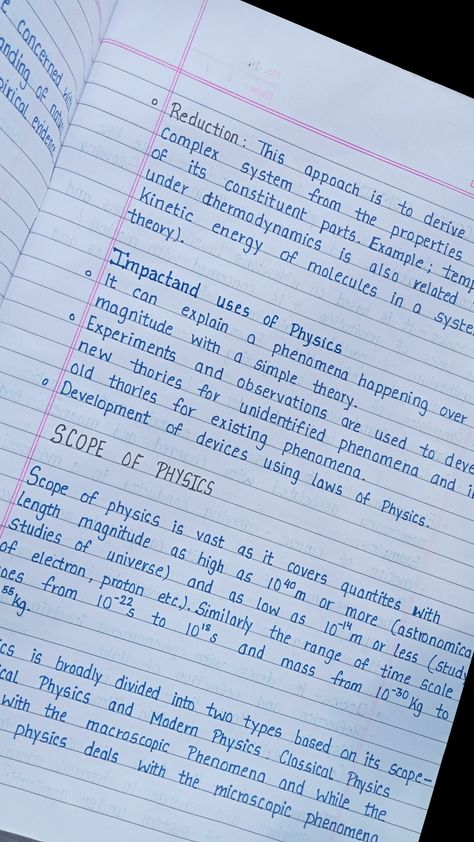 e concerned with
anding of nature
pirical evidence
Reduction: This appoach is to derive
complex system from the properties
of its constituent parts. Example; temp
under dhermodynamics is also related
kinetic energy of molecules in a system
theory).
Impactand uses of Physics
It can explain a phenomena happening over
magnitude with a simple theory.
Experiments and observations are used to deve
new thories for unidentified phenomena and i
old thories for existing phenomena.
Development of devices using laws of Physics.
SCOPE OF PHYSICS
Scope of physics is vast as it covers quantites with
length magnitude as high as 10⁴⁰m or more (astronomica
studies of universe) and as low as 10⁻¹⁴m or less (study
of electron, proton etc.). Similarly the range of time scale
oes from 10⁻²²s to 10¹⁸s and mass from 10⁻³⁰kg to
⁵⁵kg.
ics is broadly divided into two types based on its scope-
ical Physics and Modern Physics. Classical Physics
with the macroscopic Phenomena and while the
physics deals with the microscopic phenomena